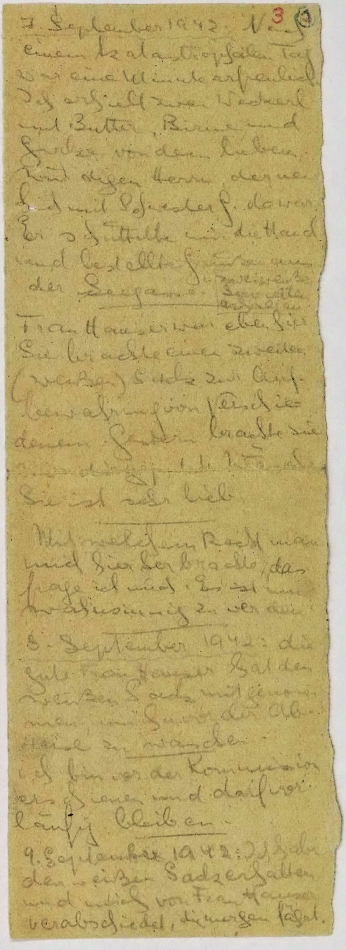 3
7. September 1942: Nach
einem katastrophalen Tag
war eine Minute erfreulich
Ich erhielt zwei Weckerl
mit Butter, Birne und
von dem lieben
Herrn, der neu-
lich mit Schwester G. da war.
Er schüttelte mir die Hand
und bestellte
der Seegasse.
Frau Hauser war eben hier
Sie brachte einen zweiten
(weißen) Sack zur Auf-
bewahrung von Verschie-
denem. Gestern brachte sie
Sie ist sehr lieb
Mit welchem Recht man
mich hierher brachte, das
frage ich mich. Es ist um
wahnsinnig zu werden.
8. September 1942: die
gute Frau Hauser hat den
weißen Sack mitgenom-
men, um ihn vor der Ab-
reise zu waschen.
Ich bin vor der Kommission
erschienen und darf vor-
läufig bleiben.
9. September 1942: Ich habe
den weißen Sack erhalten
und mich von Frau Hauser
verabschiedet, die morgen fährt.